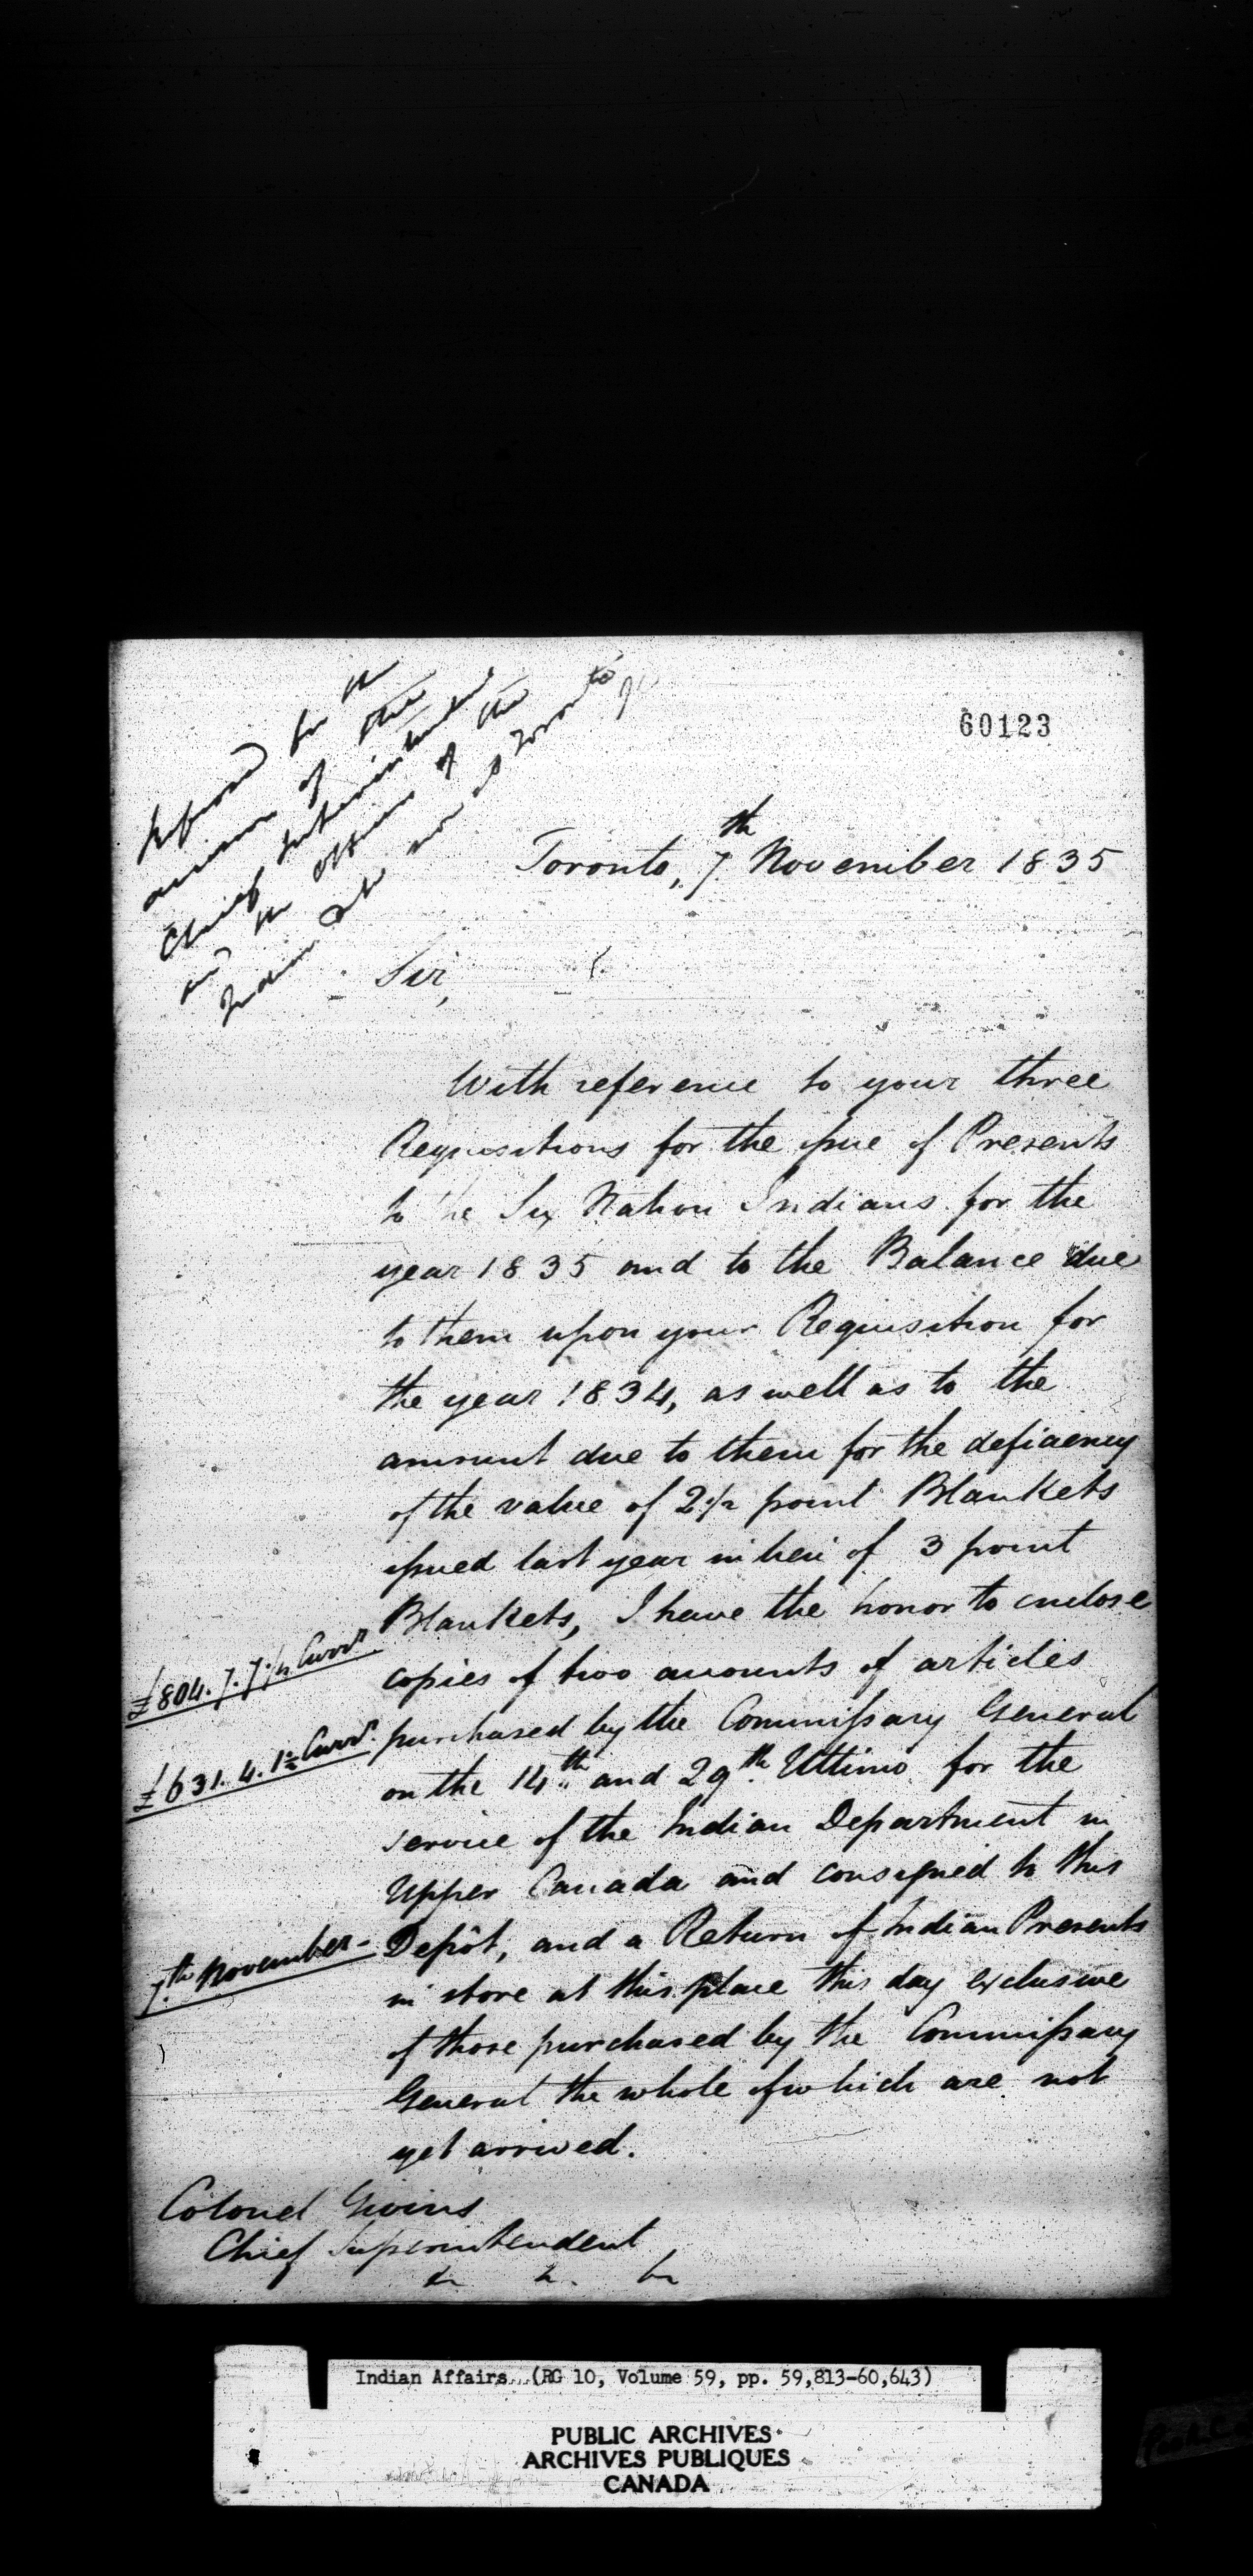 60123
Referred for the
opinion of the
Chief Superintendent
and the officers of the
Indian now at Toronto
Toronto, 7th November 1835
Sir,
With reference to your three
Requisitions for the issue of Presents
to the Six Nation Indians for the
year 1835 and to the Balance due
to them upon your Requisition for
the year 1834, as well as to the
amount due to them for the deficiency
of the value of 2 1/2 point Blankets
issued last year in lieu of 3 point
Blankets, I have the honor to enclose
£804. 7. 7 1/2 Curry
copies of two accounts of articles
purchased by the Commissary General
£631. 4. 1 1/2 Curry.
on the 14th and 29th Ultimo for the
service of the Indian Department in
Upper Canada and consigned to this
7th November-
Depôt, and a Return of Indian Presents
in store at this place this day exclusive
of those purchased by the Commissary
General the whole of which are not
yet arrived.
Colonel Givins
Chief Superintendent
&c &c. &c
Indian Affairs (RG 10, Volume 59, pp. 59,813-60,643)
PUBLIC ARCHIVES
ARCHIVES PUBLIQUES
CANADA